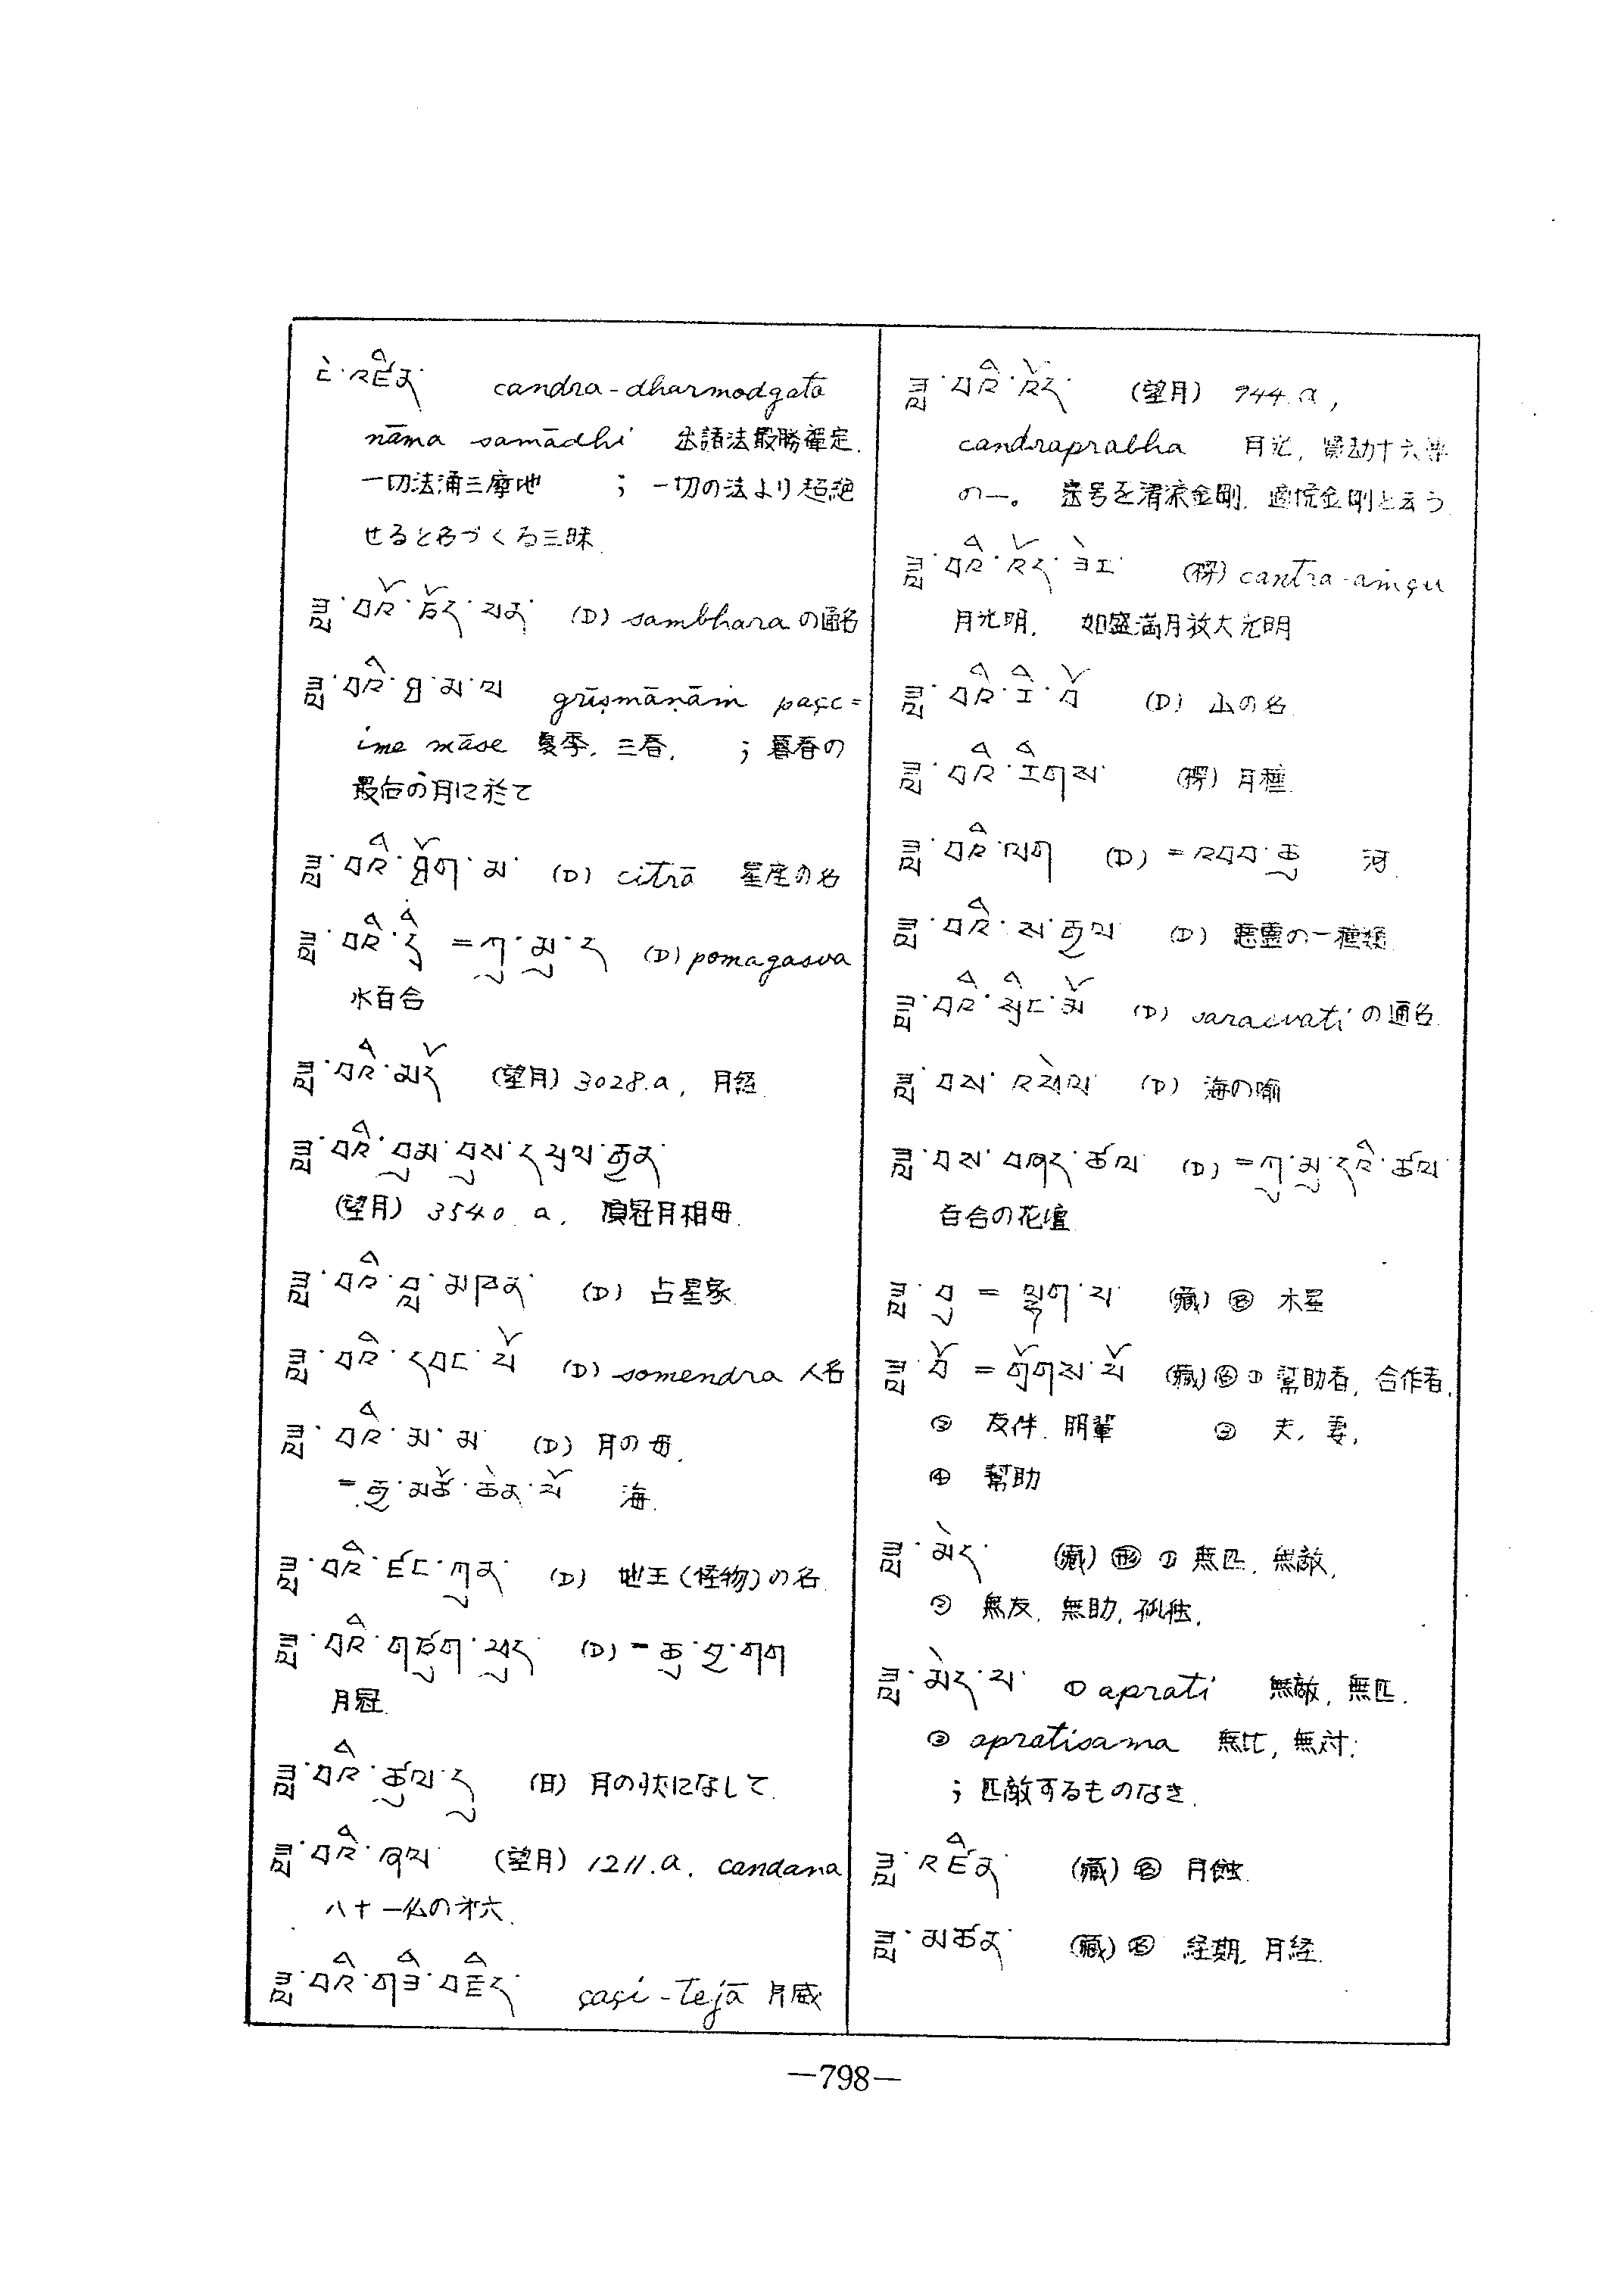 ངེ་འཛིན་ candra-dharmodgato
nāma samādhi 出諸法最勝禪定.
一切法涌三摩地 ; 一切の法より超絶
せると名づくる三昧.
ཟླ་བའི་ (D) sambhara の通名
ཟླ་བའི་ཐ་མ་ལ grīṣmāṇāṁ paçc=
ime māse 夏季, 三春, ; 暮春の
最后の月に於て
ཟླ་བའི་ཐིག་མ་ (D) citrā 星座の名
ཟླ་བའི་ = ཀུ་མུ་ད (D) pomagasva
水百合
ཟླ་བའི་མདོ་ (望月) 3028.a, 月経.
ཟླ་བའི་
(望月) 3540.a, 頂冠月相母.
ཟླ་བའི་བླ་མཁན་ (D) 占星家.
ཟླ་བའི་དབང་པོ (D) somendra 人名
ཟླ་བའི་མ་མ་ (D) 月の母.
=རྒྱ་མཚོ་ཆེན་པོ 海.
ཟླ་བའི་རྫོང་ཀུན་ (D) 地王(怪物)の名.
ཟླ་བའི་གཙུག་ཕུད་ (D) = ཙུ་ཌ་གག
月冠.
ཟླ་བའི་ཚུལ་དུ (日) 月の状になして.
ཟླ་བའི་ཞལ་ (望月) 1211.a. candana
八十一仏の才六.
ཟླ་བའི་གཟི་བརྗིད་ çaçi-tejā 月威
ཟླ་བའི་འོད་ (望月) 944.a,
candraprabha 月光, 賢劫十六尊
の一。 密号を清涼金剛, 適悦金剛と云う.
ཟླ་བའི་འོད་ཟེར་ (梵) cantra-aṁçu
月光明, 如盛満月放大光明
ཟླ་བའི་རི་བོ (D) 山の名.
ཟླ་བའི་རིགས་ 月種.
ཟླ་བའི་ལག (D) =འབབ་ཆུ 河.
ཟླ་བའི་ས་རྒྱལ་ (D) 悪霊の一種類.
ཟླ་བའི་སྲིང་མོ (D) saracvati の通名.
ཟླ་བས་འཕེལ་ (D) 海の喩
ཟླ་བས་བཞད་ཚལ་ (D) =ཀུ་མུ་དའི་ཚལ་
百合の花壇.
ཟླ་བུ = ལྷག་པ་ (藏) 名 木星
ཟླ་བོ = གྲོགས་པོ (藏) 名 ① 幇助者, 合作者,
② 友伴, 朋輩 ③ 夫, 妻,
④ 幇助
ཟླ་མེད་ (藏) 形 ① 無匹, 無敵,
② 無友, 無助, 孤独,
ཟླ་མེད་པ་ ① aprati 無敵, 無匹.
② apratisama 無比, 無対;
; 匹敵するものなき.
ཟླ་འཛིན་ (藏) 名 月蝕.
ཟླ་མཚན་ (藏) 名 経期, 月経.
—798—